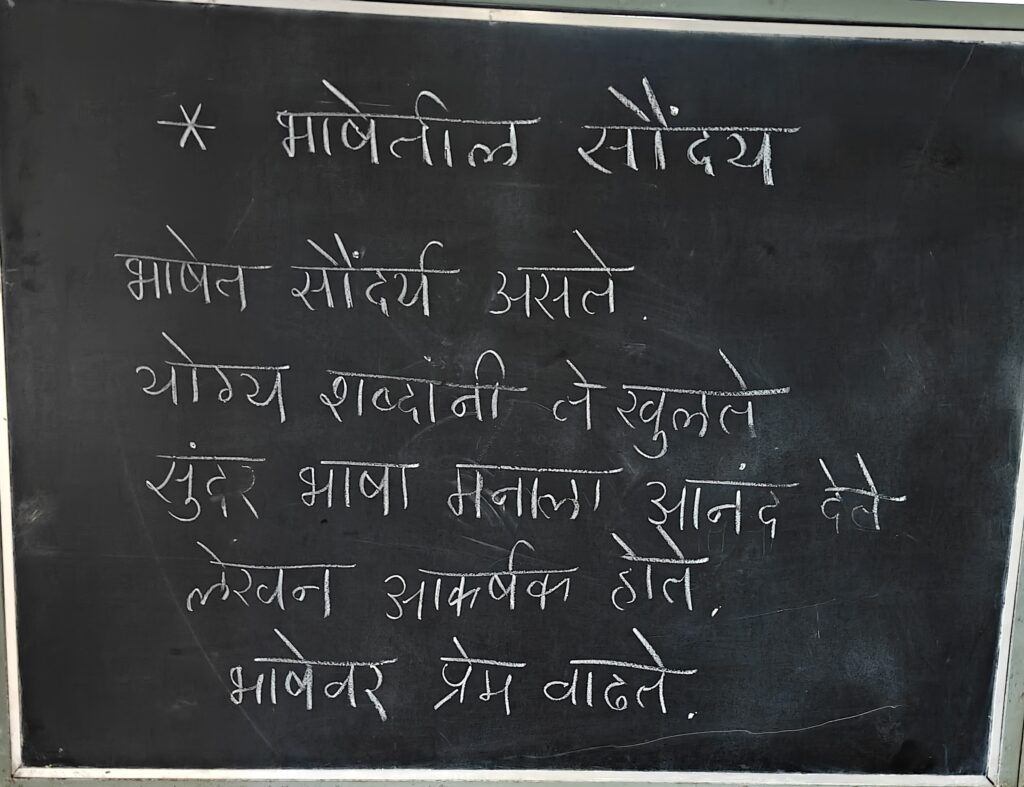 * भाषेतील सौंदय
भाषेत सौंदर्य असते.
योग्य शब्दांनी ते खुलते
सुंदर भाषा मनाला आनंद देते
लेखन आकर्षक होते.
भाषेवर प्रेम वाढते.